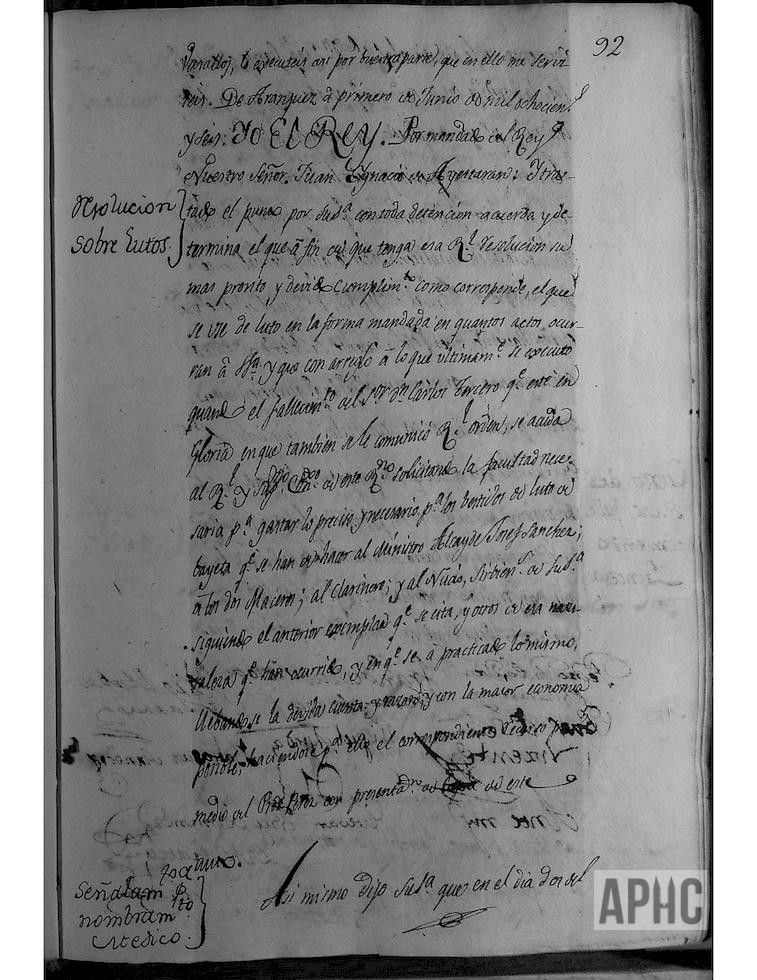 92
Vasallos, lo executeis asi por buestra parte, que en ello me servi
reis. De Aranjuez a primero de Junio de mil ochocient.s
y seis. Yo El Rey. Por mandado del Rey
Nuestro Señor. Juan Ignacio de Ayestaran: Ytra-
Resolucion
sobre Lutos.
tado el punto por Sus.a con toda detencion acuerda y de-
termina el que â fin de que tenga esa R.l resolucion su
mas pronto, y devido Cumplim.to como corresponde, el que
se vse de luto en la forma mandada en quantos actos ocur-
ran â y que con arreglo â lo que vltimam.te se executó
quando el fallecim.to del S.or D.n Carlos Tercero q.e esté en
Gloria en que tambien se le comunicó R.l orden, se acuda
al R.l y Sup.mo de este R.no solicitando la facultad nece-
saria p.a gastar lo preciso, y necesario p.a los bestidos de luto de
bayeta q.e se han de hacer al Ministro Alcayde Josef Sanchez;
a los dos Maceros; al Clarinero; y al Nuño, Sirbien.te de Sus.a
siguiendo el anterior exemplar q.e se cita, y otros de esa natu-
raleza q.e han ocurrido, y en q.e se â practicado lo mismo,
llebandose la devida cuenta y razon, y con la maior economia
posible, haciendose p.a ello el correspondiente recurso p.r
medio del con presentaz.on de de este
tamo.
Señalam.to
nombram.to
Medico.
Asi mismo dijo Sus.a que en el dia dos del
APHC